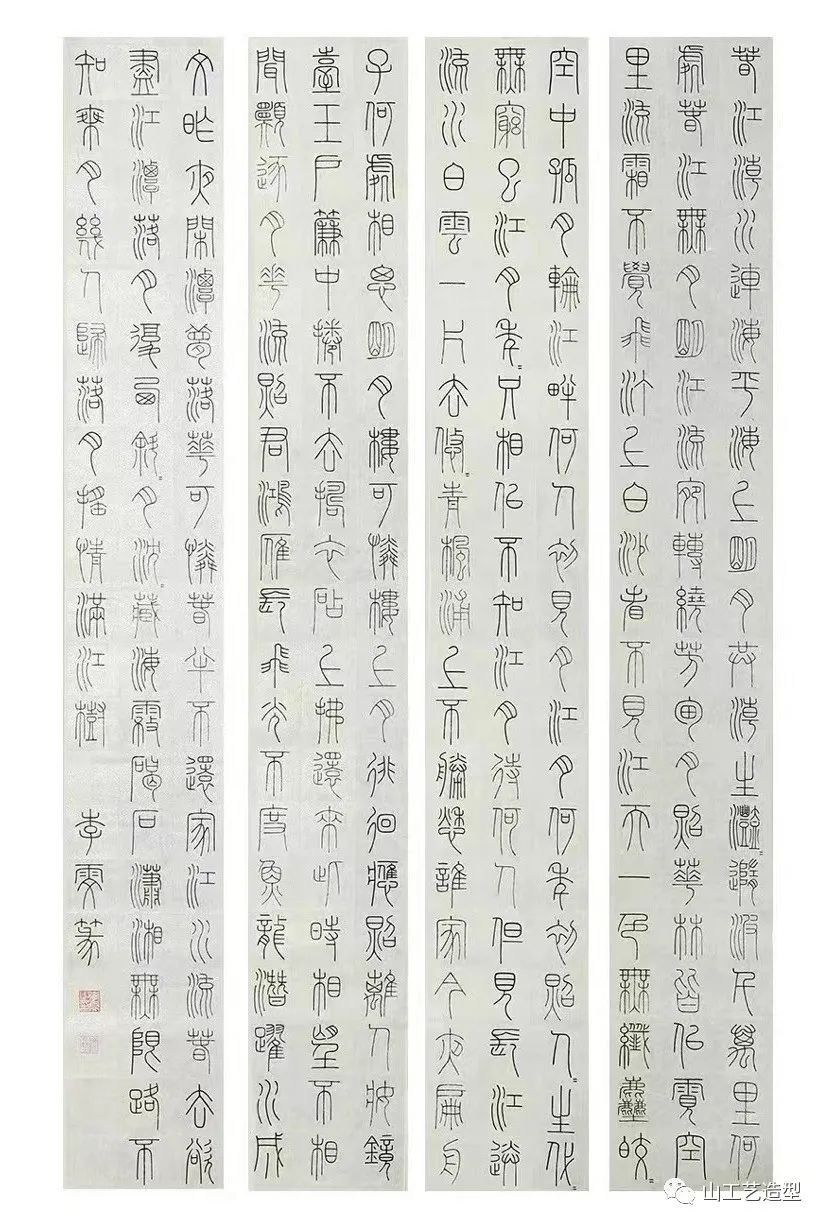 春江潮水連海平海上明月共潮生灩〻隨波千萬里何
處春江無月明江流宛轉繞芳甸月照華林皆似霰空
里流霜不覺飛汀上白沙看不見江天一色無纖塵皎〻
空中孤月輪江畔何人初見月江月何年初照人〻生代〻
無窮已江月年〻只相似不知江月待何人但見長江送
流水白雲一片去悠〻青楓浦上不勝愁誰家今夜扁舟
子何處相思明月樓可憐樓上月徘徊應照離人妝鏡
臺玉戶簾中捲不去搗衣砧上拂還來此時相望不相
聞願逐月華流照君鴻雁長飛光不度魚龍潛躍水成
文昨夜閑潭夢落華可憐春半不還家江水流春去欲
盡江潭落月復西斜〻月沈〻藏海霧碣石瀟湘無限路不
知乘月幾人歸落月搖情滿江樹 孝雯篆
山工艺造型